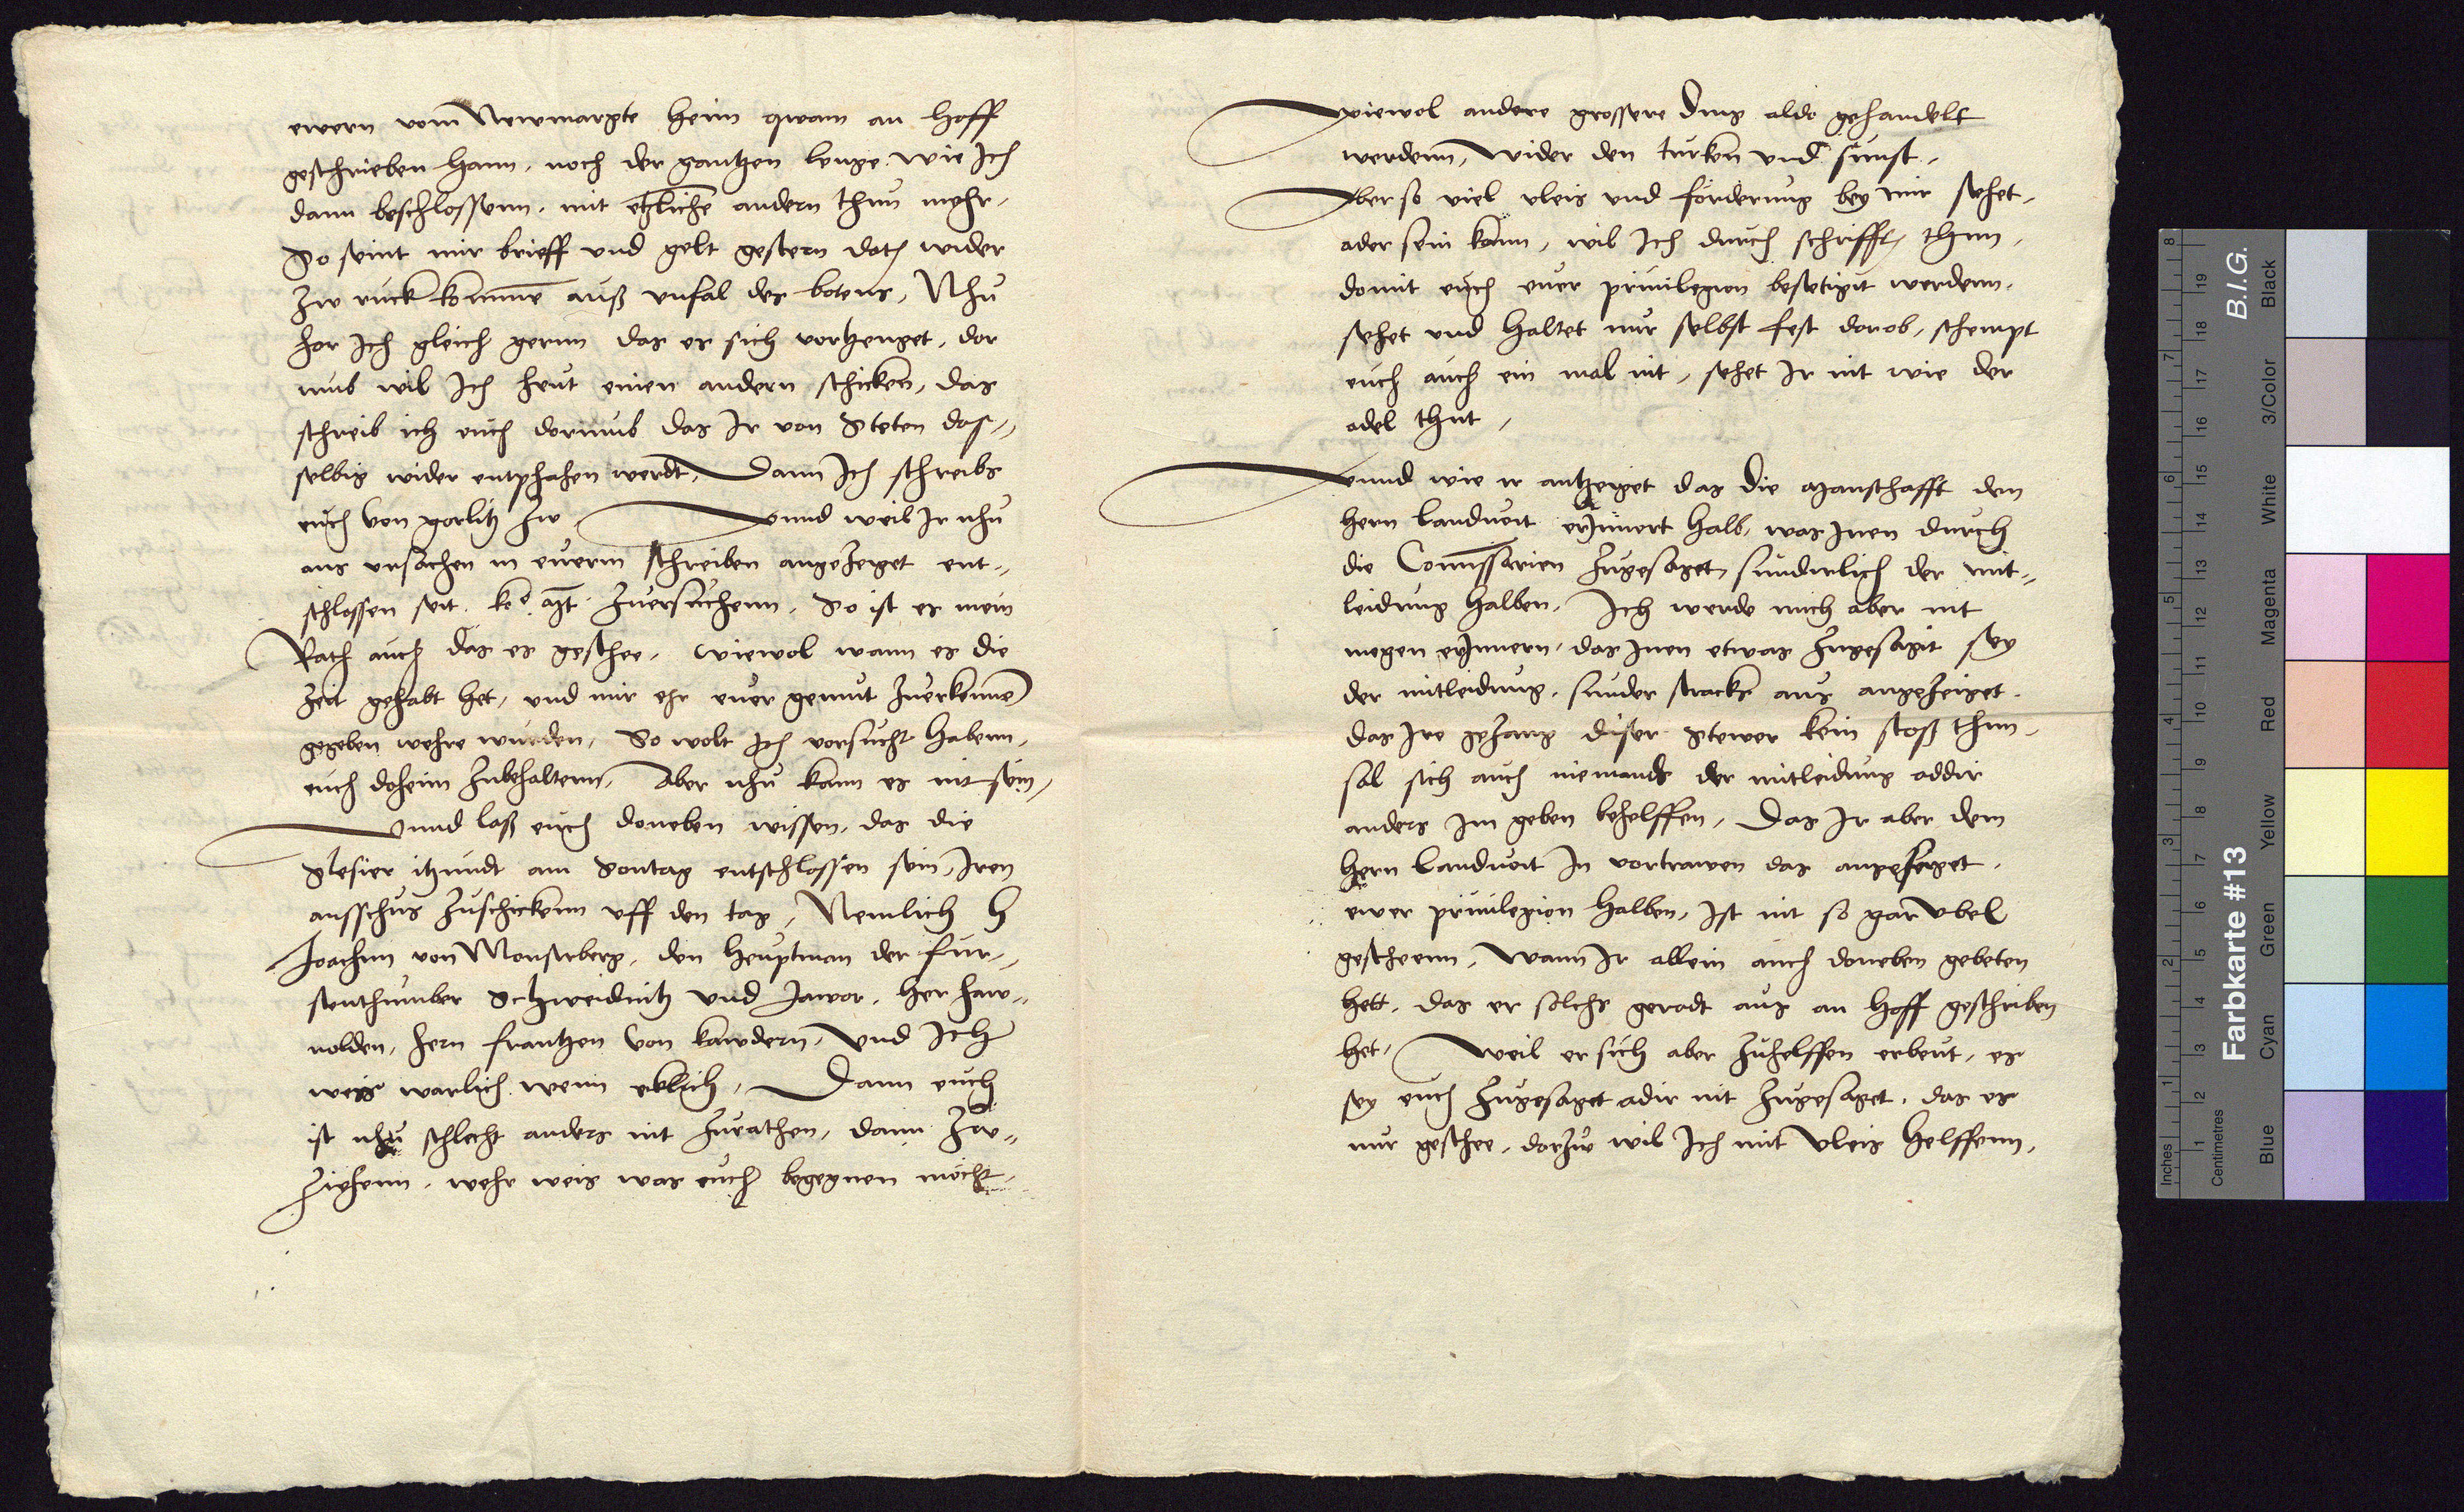 ewern vom Newmargte heim qwam an hoff
geschrieben hann, noch der gantzen lenge wie Ich
dann beschlossenn, mit etzliche andern thun mehr,
So seint mir brieff und gelt gestern doch wider
zw ruck komme auß unfal des botens, Nhu
hor Ich gleich gernn das es sich vortzeuget, dor
umb wil Ich heut einen andern schicken, das
schreib ich euch dorumb das Ir von Steten das-
selbig wider entphahen werdt, Dann Ich schreibs
euch von gorlitz zw Vnnd weil Ir nhu
aus ursachen in euerm schreiben angezeiget ent-
schlossen seit ko. Mt. zuersuchenn, So ist es mein
Rath auch das es geschee, wiewol wann es die
zeit gehabt het, und mir ehr euer gemut zuerkenne
gegeben wehre wurden, So wolt Ich vorsucht habenn,
euch doheim zubehaltenn, Aber nhu kann es nit sein,
Vnnd laß euch doneben wissen, das die
Slesier itzundt am Sontag entschlossen sein, Iren
ausschus zuschickenn uff den tag, Nemlich h
Joachim von Monsterberg, den heuptman der fur-
stenthumber Schweidnitz und Jawor, her haw-
nolden, hern frantzen von kawdern, und Ich
weiß warlich wenn etlich, Dann euch
ist nhu schlecht anders nit zurathen, dann zw-
ziehenn, wehr weis was euch begegnen möcht,
Wiewol andere grossere Ding aldo gehandelt
werdenn, wider den turken und sunst,
Aber so viel vleis und förderung bey mir sehet,
ader sein kann, wil Ich durch schrifft thun,
domit euch euer privilegion bestetigit werdenn,
sehet und haltet nur selbst fest dorob, schempt
euch auch ein mal nit, sehet Ir nit wie der
adel thut,
Vnnd wie ir antzeiget das die Manschafft den
hern landvoit erInnert halb, was Inen durch
die Comissarien zugesaget, sunderlich der mit-
leidung halben, Ich werde mich aber nit
mogen erInnern, das Inen etwas zugesagit sey
der mitleidung, sunder stracks aus angezeiget,
das Ire gehang diser Stewer kein stoß thun,
sal sich auch niemands der mitleidung addir
anders Im geben behelffen, Das Ir aber dem
hern landvoit In vortrawen das angezeiget,
ewer privilegion halben, Ist nit so gar ubel
gescheenn, Wann Ir allein auch doneben gebeten
hett, das er solchs geradt aus an hoff geschriben
het, Weil er sich aber zuhelffen erbeut, es
sey euch zugesaget adir nit zugesaget, das es
nur geschee, dorzw wil Ich mit vleis helffenn,
Inches
Centimetres
Farbkarte #13
B.I.G.
Blue Cyan Green Yellow Red Magenta White 3/Color Black